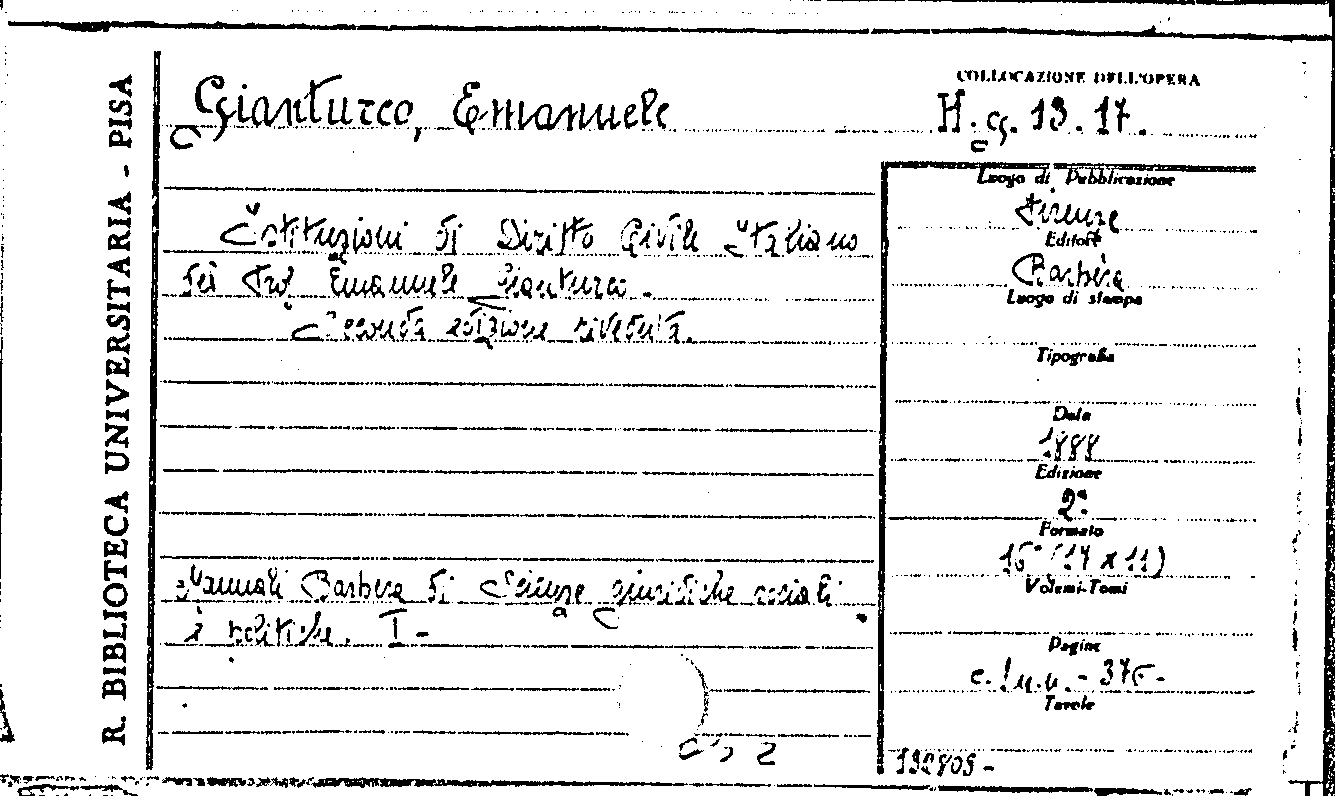 R. BIBLIOTECA UNIVERSITARIA - PISA
Gianturco, Emanuele
COLLOCAZIONE DELL'OPERA
H. g. 13. 17.
Istituzioni di Diritto Civile Italiano
del Prof Emanuele Gianturco.
Seconda edizione riveduta.
Manuali Barbera di Scienze giuridiche sociali
e politiche. I -
Luogo di Pubblicazione
Firenze
Editore
Barbèra
Luogo di stampa
Tipografia
Data
1888
Edizione
2ª
Formato
16° (17 x 11)
Volumi-Tomi
Pagine
c. 1 n.n. - 376 -
Tavole
192809 -